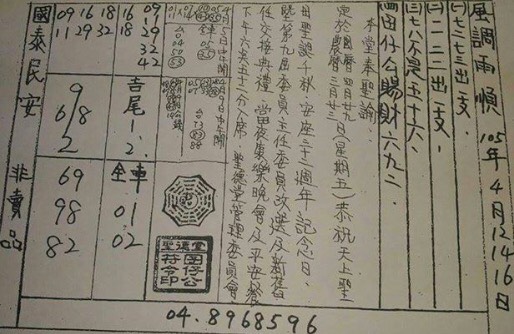 風調雨順
105年4月12 14 16日
㈠七2七3出一支、
㈡一二 三 出一支、
㈢七八不是五十六、
㈣囝仔公賜財六九二、
本堂奉聖諭：
農曆三月廿三日
(星期五)恭祝天上聖
母聖誕千秋、安座三十二週年記念日、
暨第九屆委員主任委員改選及新舊
任交接典禮、當夜康樂晚會及平安餐
下午六点五十分入席 聖德堂管理委員會
09 16 18
11 29 32
16
18
09
11
29
32
42
吉尾
1、2、
9
6/8
2
全車
01
02
69
98
82
聖德堂
囝仔公
符令印
國泰民安
非賣品
04.8968596